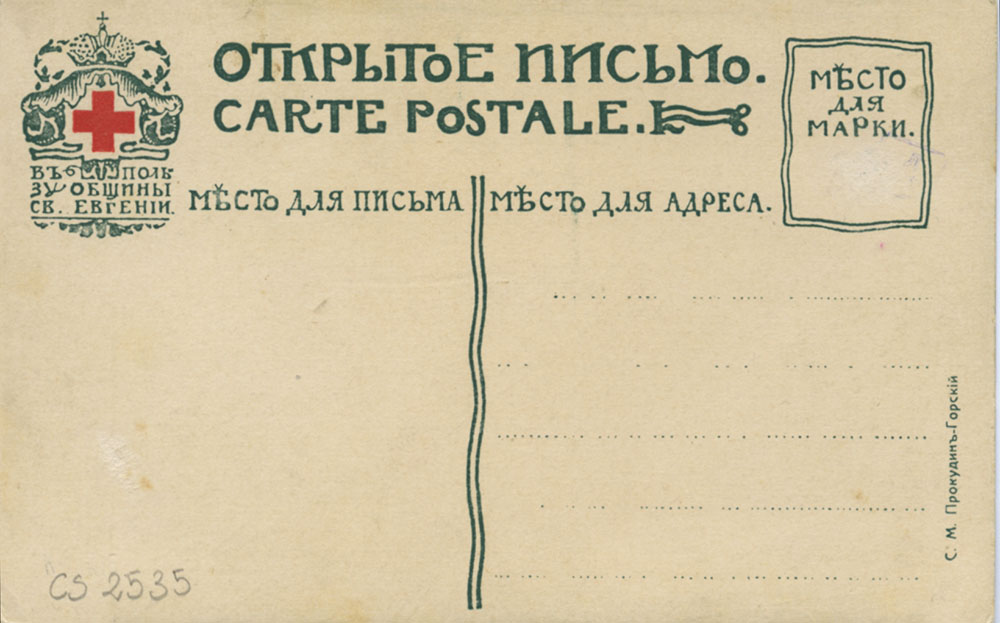 ОТКРЫТОЕ ПИСЬМО.
CARTE POSTALE.
МѢСТО
ДЛЯ
МАРКИ.
ВЪ ПОЛЬ
ЗУ ОБЩИНЫ
СВ. ЕВГЕНІИ.
МѢСТО ДЛЯ ПИСЬМА
МѢСТО ДЛЯ АДРЕСА.
С. М. Прокудинъ-Горскій
CS 2535